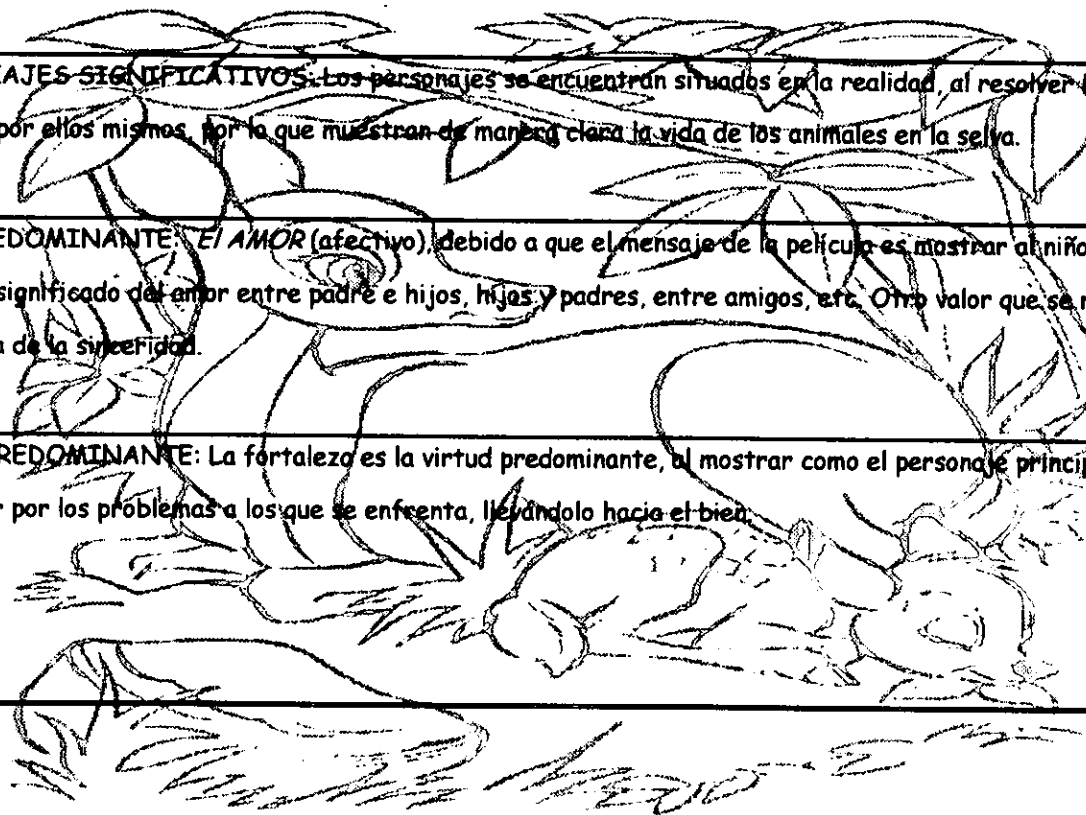 AJES SIGNIFICATIVOS: Los personajes se encuentran situados en la realidad, al resolver
por ellos mismos, por lo que muestran de manera clara la vida de los animales en la selva.
EDOMINANTE: El AMOR (afectivo), debido a que el mensaje de la película es mostrar al niño
significado del amor entre padre e hijos, hijos y padres, entre amigos, etc. Otro valor que se
de la sinceridad.
REDOMINANTE: La fortaleza es la virtud predominante, al mostrar como el personaje princip
por los problemas a los que se enfrenta, llevándolo hacia el bien.